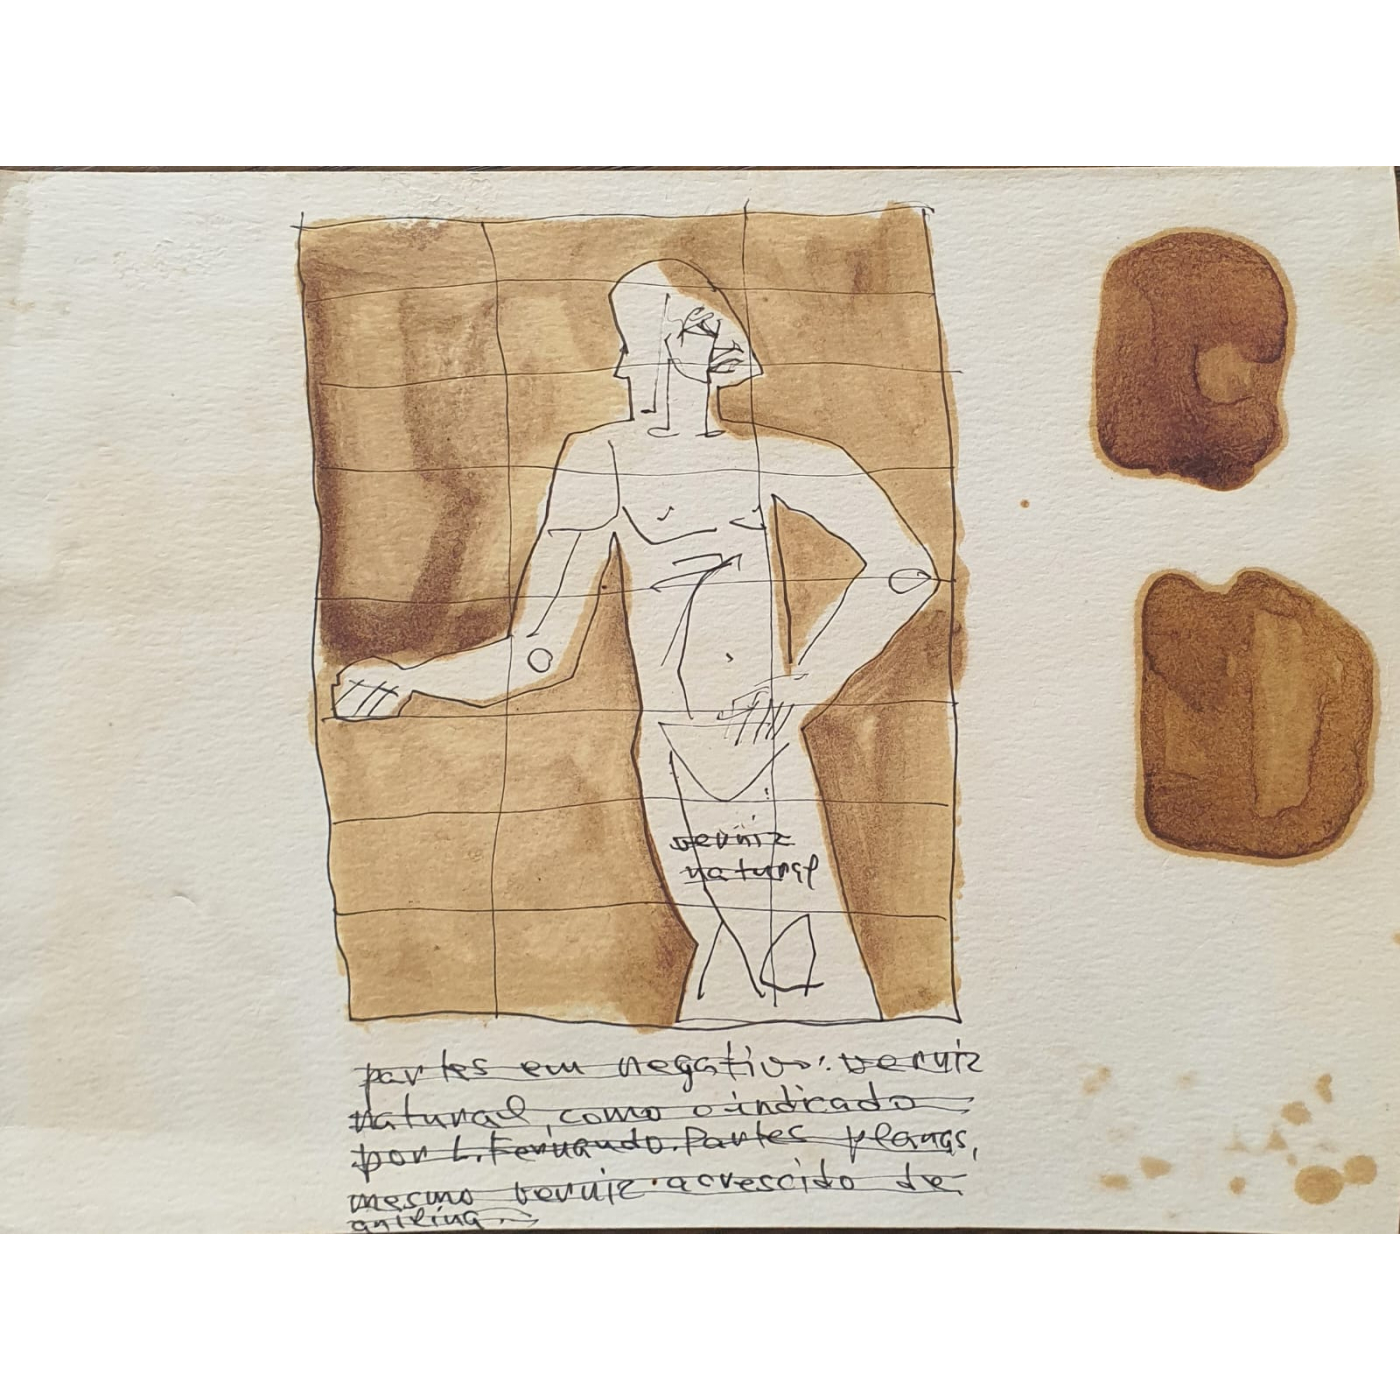 verniz
natural
partes em negativo: verniz
natural, como o indicado
por L. Fernando. Partes planas,
mesmo verniz acrescido de
anilina